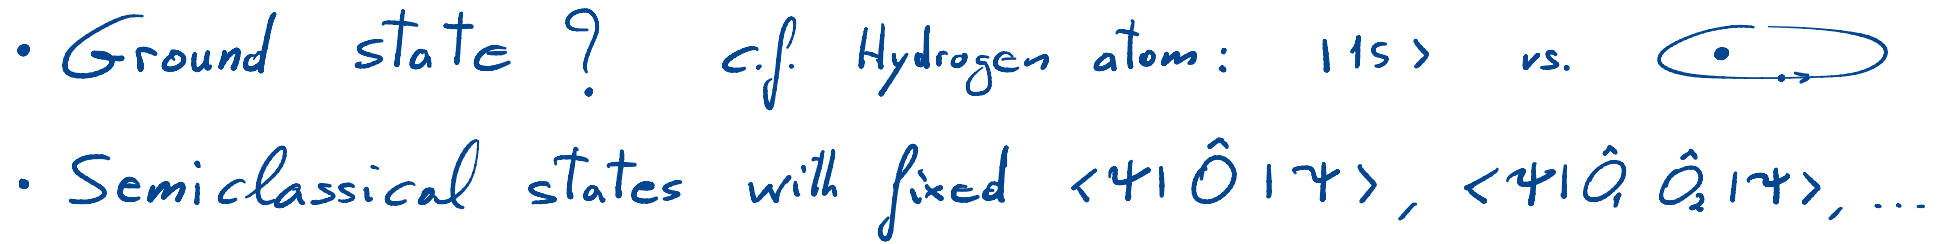 • Ground state ? c.f. Hydrogen atom: |1s> vs.
• Semiclassical states with fixed <ψ|Ô|ψ>, <ψ|Ô₁ Ô₂|ψ>, ...